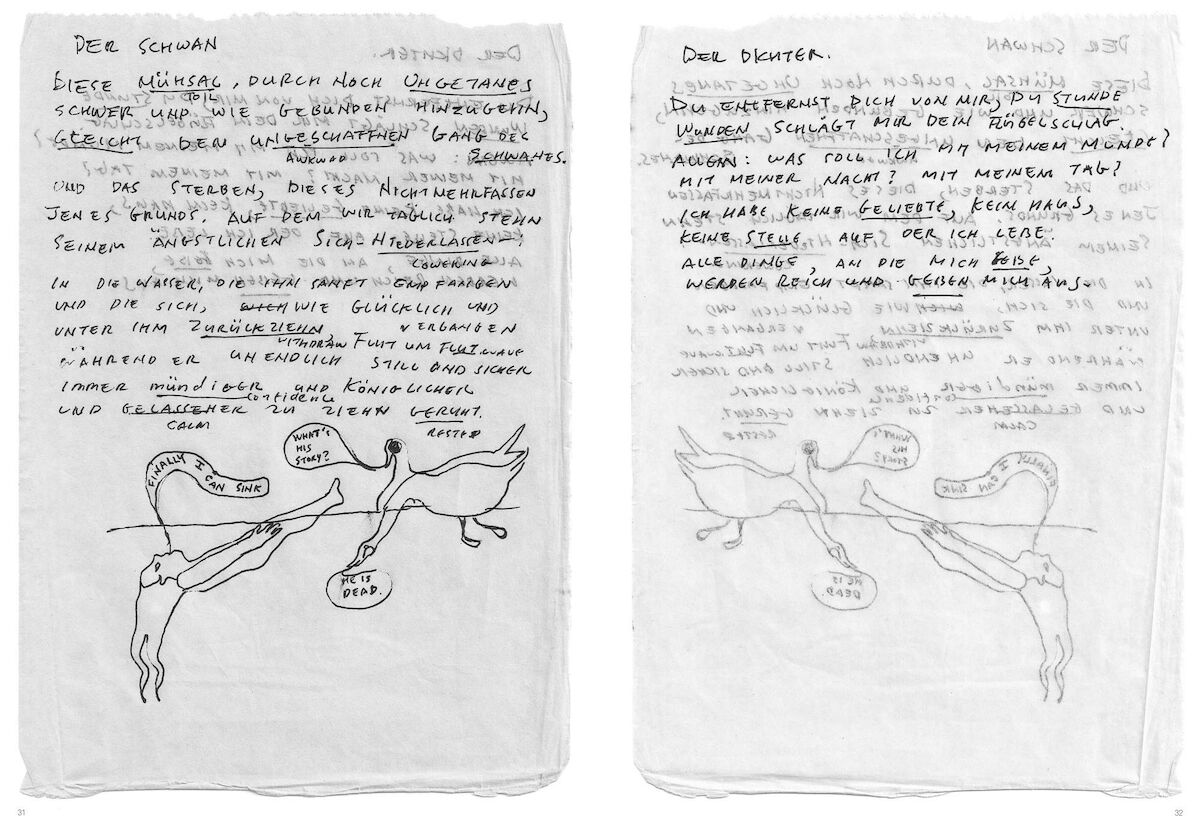 DER SCHWAN
DIESE MÜHSAL, DURCH NOCH UNGETANES
TOIL
SCHWER UND WIE GEBUNDEN HINZUGEHN,
GLEICHT DEN UNGESCHAFFNEN GANG DES
AWKWAD
SCHWANES.
UND DAS STERBEN, DIESES NICHTMEHRFASSEN
JENES GRUNDS, AUF DEM WIR TÄGLICH STEHN
SEINEM ÄNGSTLICHEN SICH-NIEDERLASSEN-:
LOWERING
IN DIE WASSER, DIE IHN SANFT EMPFANGEN
UND DIE SICH, WIE GLÜCKLICH UND
VERGANGEN
UNTER IHM ZURÜCKZIEHN
WITHDRAW FLUT UM FLUT, WAVE
WÄHREND ER UNENDLICH STILL UND SICHER
IMMER mündiger UND KÖNIGLICHER
confidence
UND GELASSENER ZU ZIEHN GERUHT.
CALM
RESTED
WHAT'S
HIS
STORY?
FINALLY I
CAN SINK
HE IS
DEAD.
31
DER DICHTER.
DU ENTFERNST DICH VON MIR, DU STUNDE
WUNDEN SCHLÄGT MIR DEIN FLÜGELSCHLAG
ALLEIN: WAS SOLL ICH MIT MEINEM MUNDE?
MIT MEINER NACHT? MIT MEINEM TAG?
ICH HABE KEINE GELIEBTE, KEIN HAUS,
KEINE STELLE AUF DER ICH LEBE.
ALLE DINGE, AN DIE MICH GEBE,
WERDEN REICH UND GEBEN MICH AUS.
32